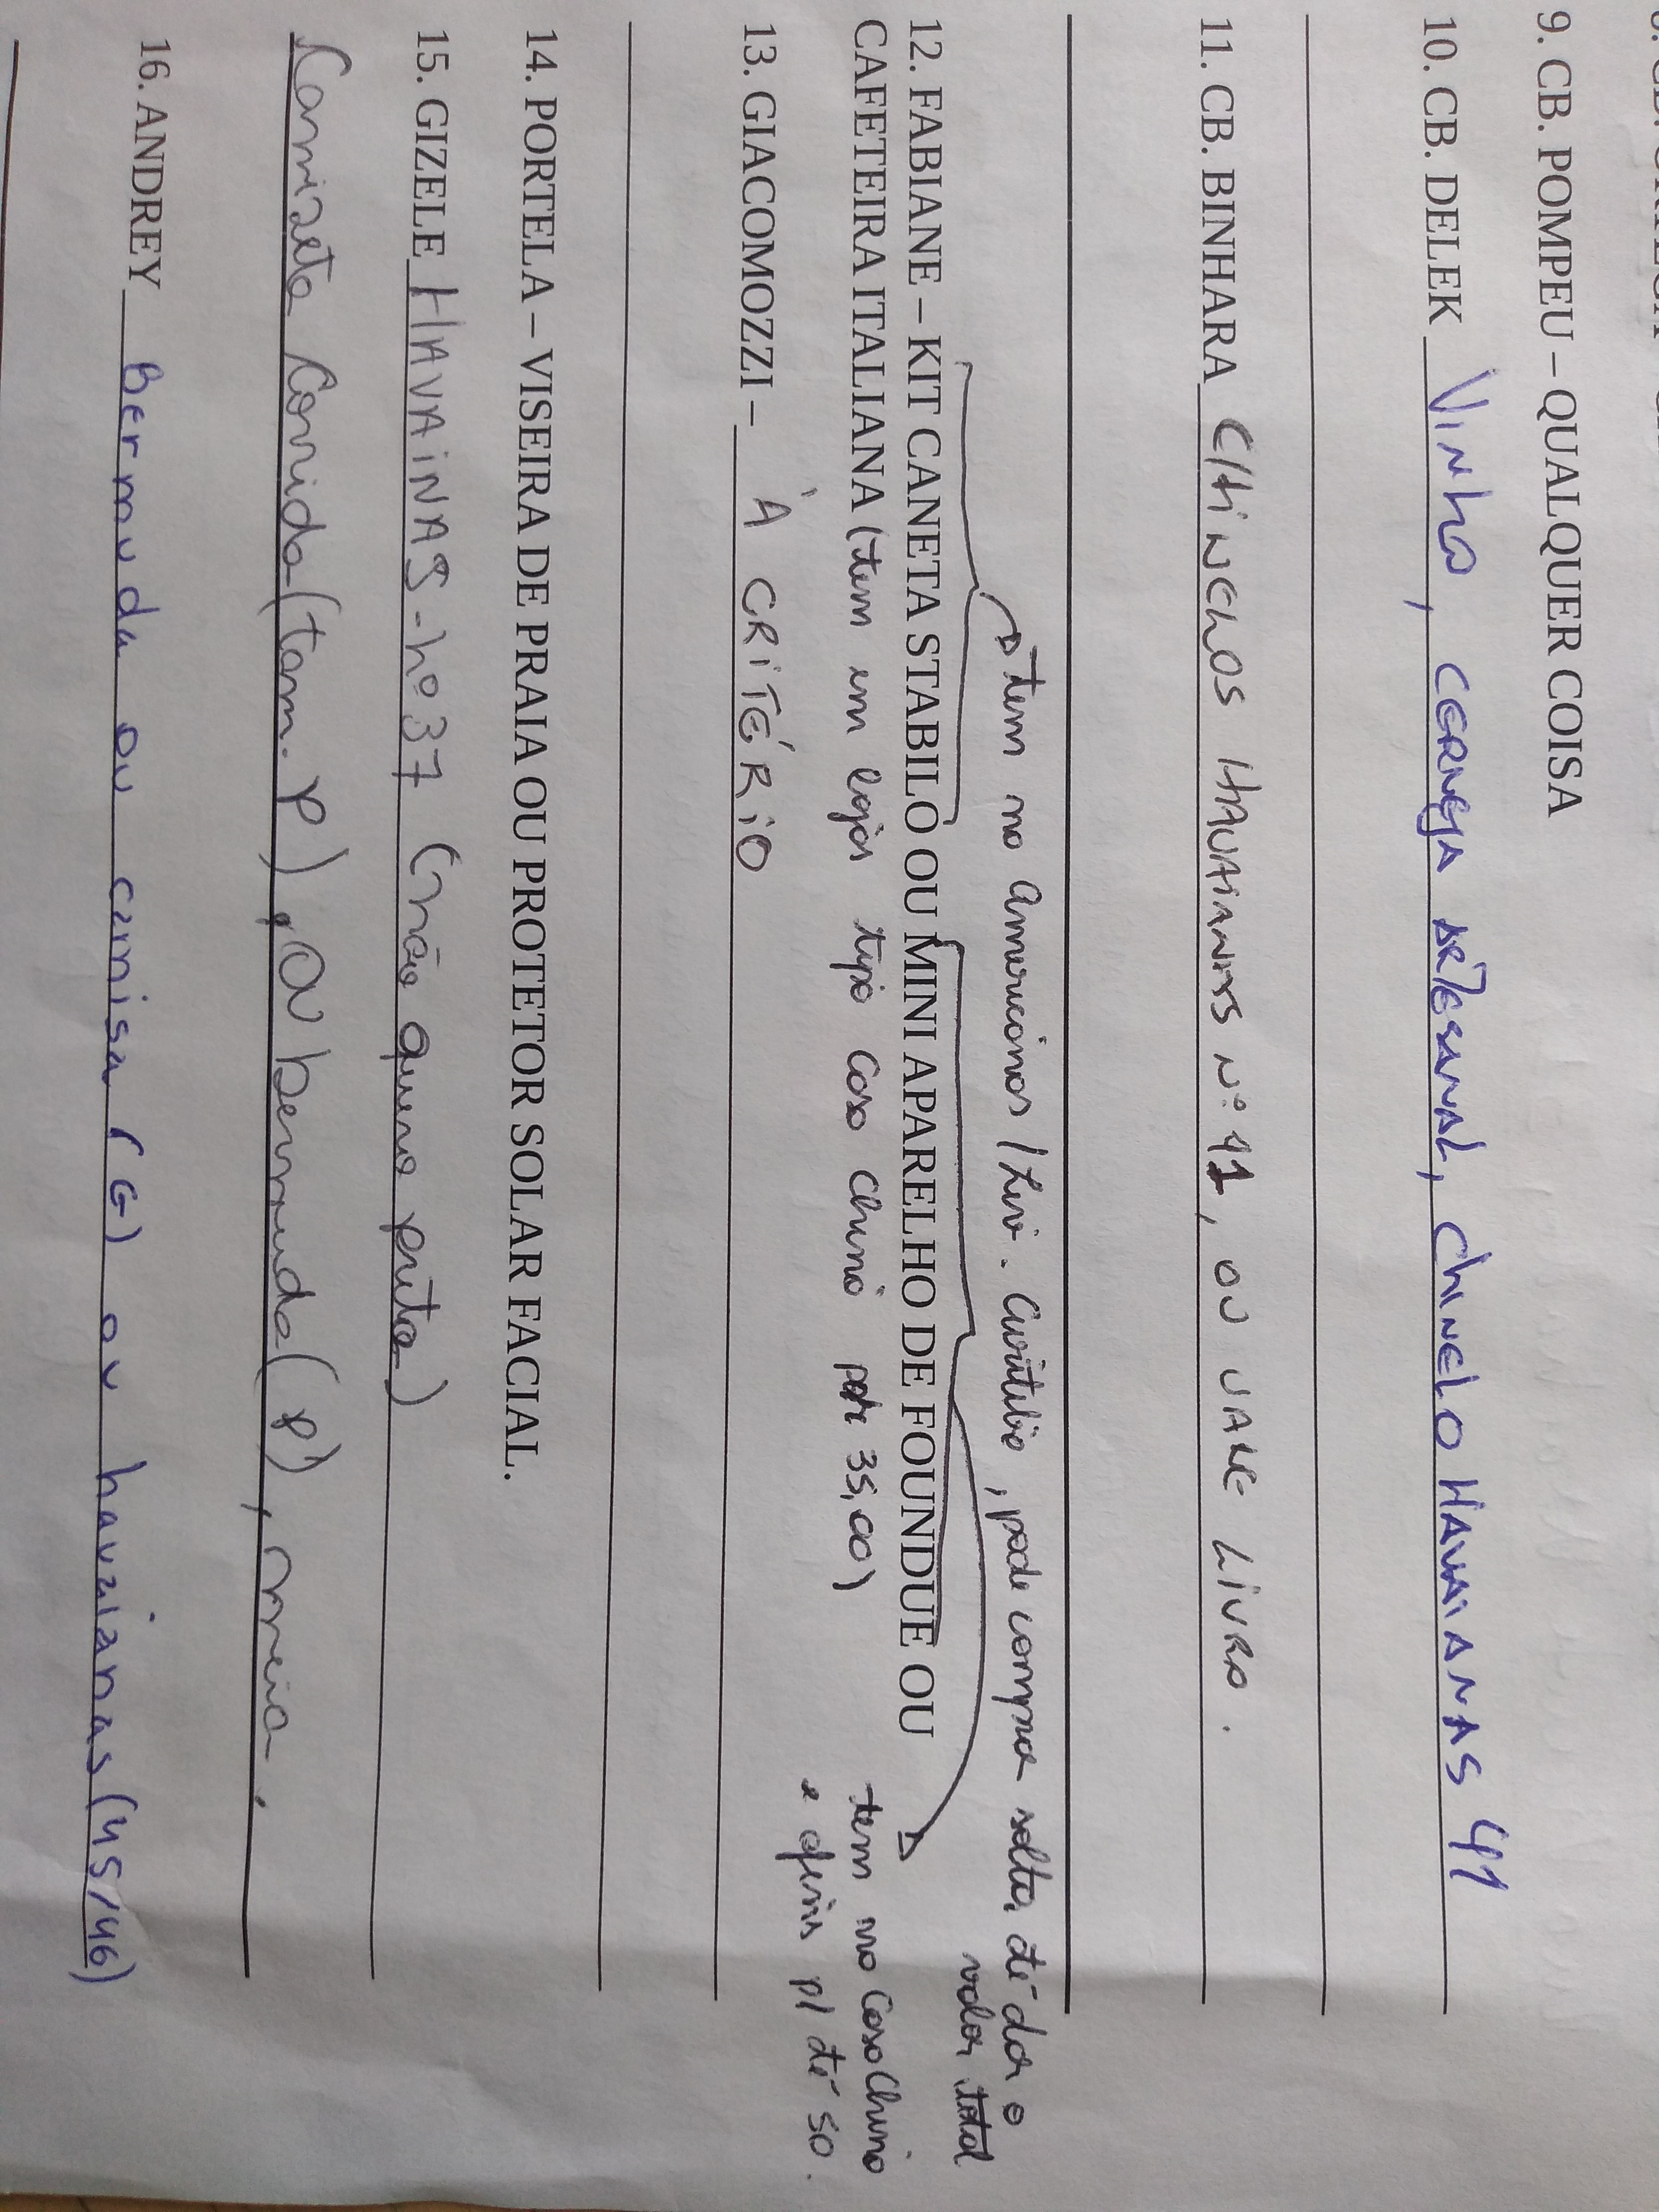 9. CB. POMPEU – QUALQUER COISA
10. CB. DELEK VINHO, CERVEJA ARTESANAL, CHINELO HAVAIANAS 41
11. CB. BINHARA CHINELOS HAVAIANAS Nº 41, OU VALE LIVRO.
tem na Americanas / Liv. Curitiba, pode comprar soltas até dar o
valor total
12. FABIANE – KIT CANETA STABILO OU MINI APARELHO DE FOUNDUE OU
CAFETEIRA ITALIANA (tem em lojas tipo Casa China por 35,00)
tem na Casa China
e afins p/ até 50.
13. GIACOMOZZI – À CRITÉRIO
14. PORTELA – VISEIRA DE PRAIA OU PROTETOR SOLAR FACIAL.
15. GIZELE HAVAINAS - nº 37 (não quero preta)
Camiseta Corrida (tam. P), OU bermuda (P), meia.
16. ANDREY bermuda ou camisa (G) ou havaianas (45/46)